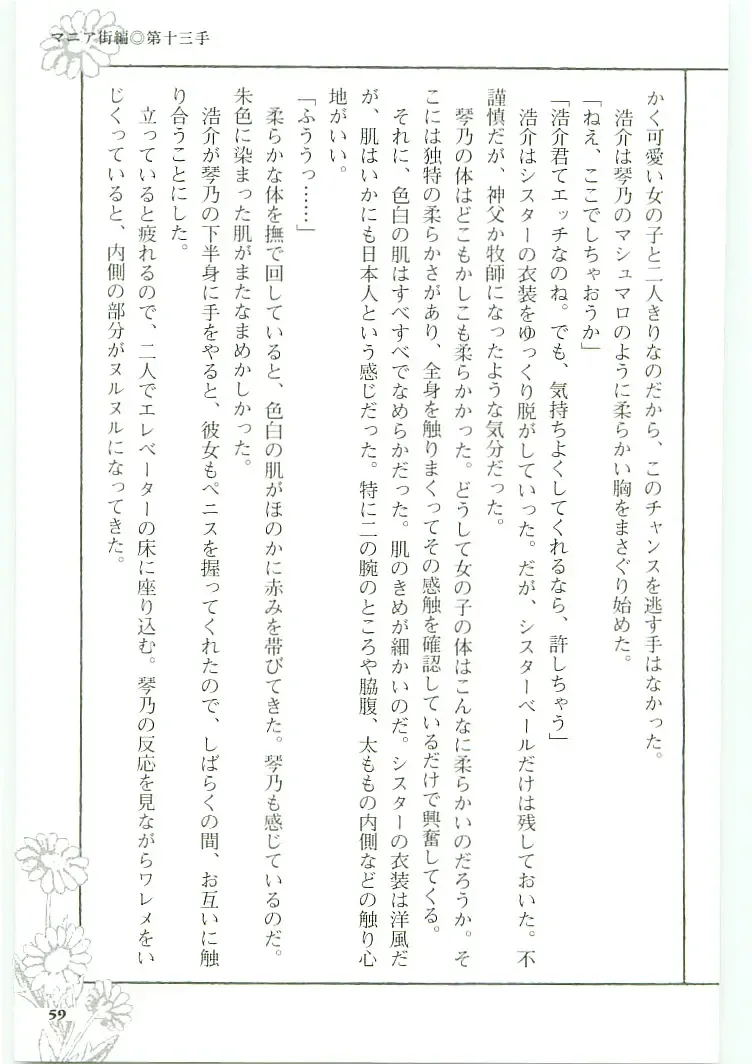 マニア街編◎第十三手
かく可愛い女の子と二人きりなのだから、このチャンスを逃す手はなかった。
浩介は琴乃のマシュマロのように柔らかい胸をまさぐり始めた。
「ねえ、ここでしちゃおうか」
「浩介君てエッチなのね。でも、気持ちよくしてくれるなら、許しちゃう」
浩介はシスターの衣装をゆっくり脱がしていった。だが、シスターベールだけは残しておいた。不
謹慎だが、神父か牧師になったような気分だった。
琴乃の体はどこもかしこも柔らかかった。どうして女の子の体はこんなに柔らかいのだろうか。そ
こには独特の柔らかさがあり、全身を触りまくってその感触を確認しているだけで興奮してくる。
それに、色白の肌はすべすべでなめらかだった。肌のきめが細かいのだ。シスターの衣装は洋風だ
が、肌はいかにも日本人という感じだった。特に二の腕のところや脇腹、太ももの内側などの触り心
地がいい。
「ふううっ……」
柔らかな体を撫で回していると、色白の肌がほのかに赤みを帯びてきた。琴乃も感じているのだ。
朱色に染まった肌がまたなまめかしかった。
浩介が琴乃の下半身に手をやると、彼女もペニスを握ってくれたので、しばらくの間、お互いに触
り合うことにした。
立っていると疲れるので、二人でエレベーターの床に座り込む。琴乃の反応を見ながらワレメをい
じくっていると、内側の部分がヌルヌルになってきた。
59